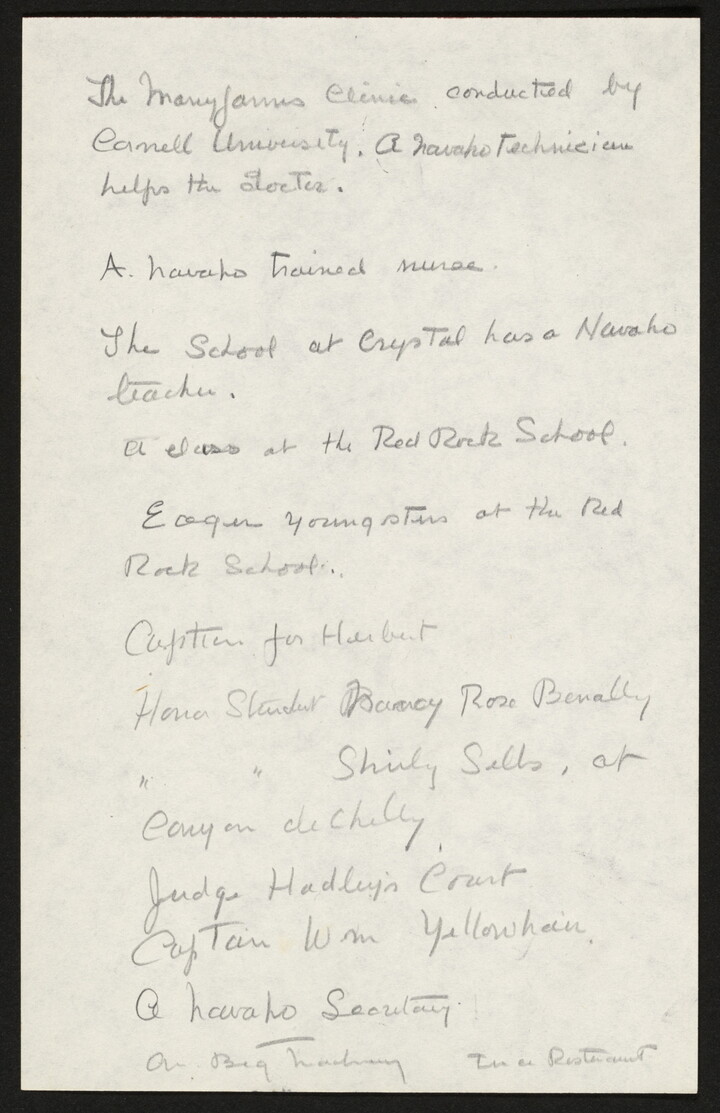 The Manyfarms Clinic conducted by
Cornell University. A navaho Technician
helps the doctor.
A. navaho trained nurse.
The School at Crystal has a Navaho
teacher.
A class at the Red Rock School.
Eager youngsters at the Red
Rock School.
Caption for Haibert
Honor Student Rose Benally
" " Shirly Sells, at
Canyon de Chelly
Judge Hadley's Court
Captain Wm Yellowhair.
A navaho Secretary
On Big Machinery In a Restaurant